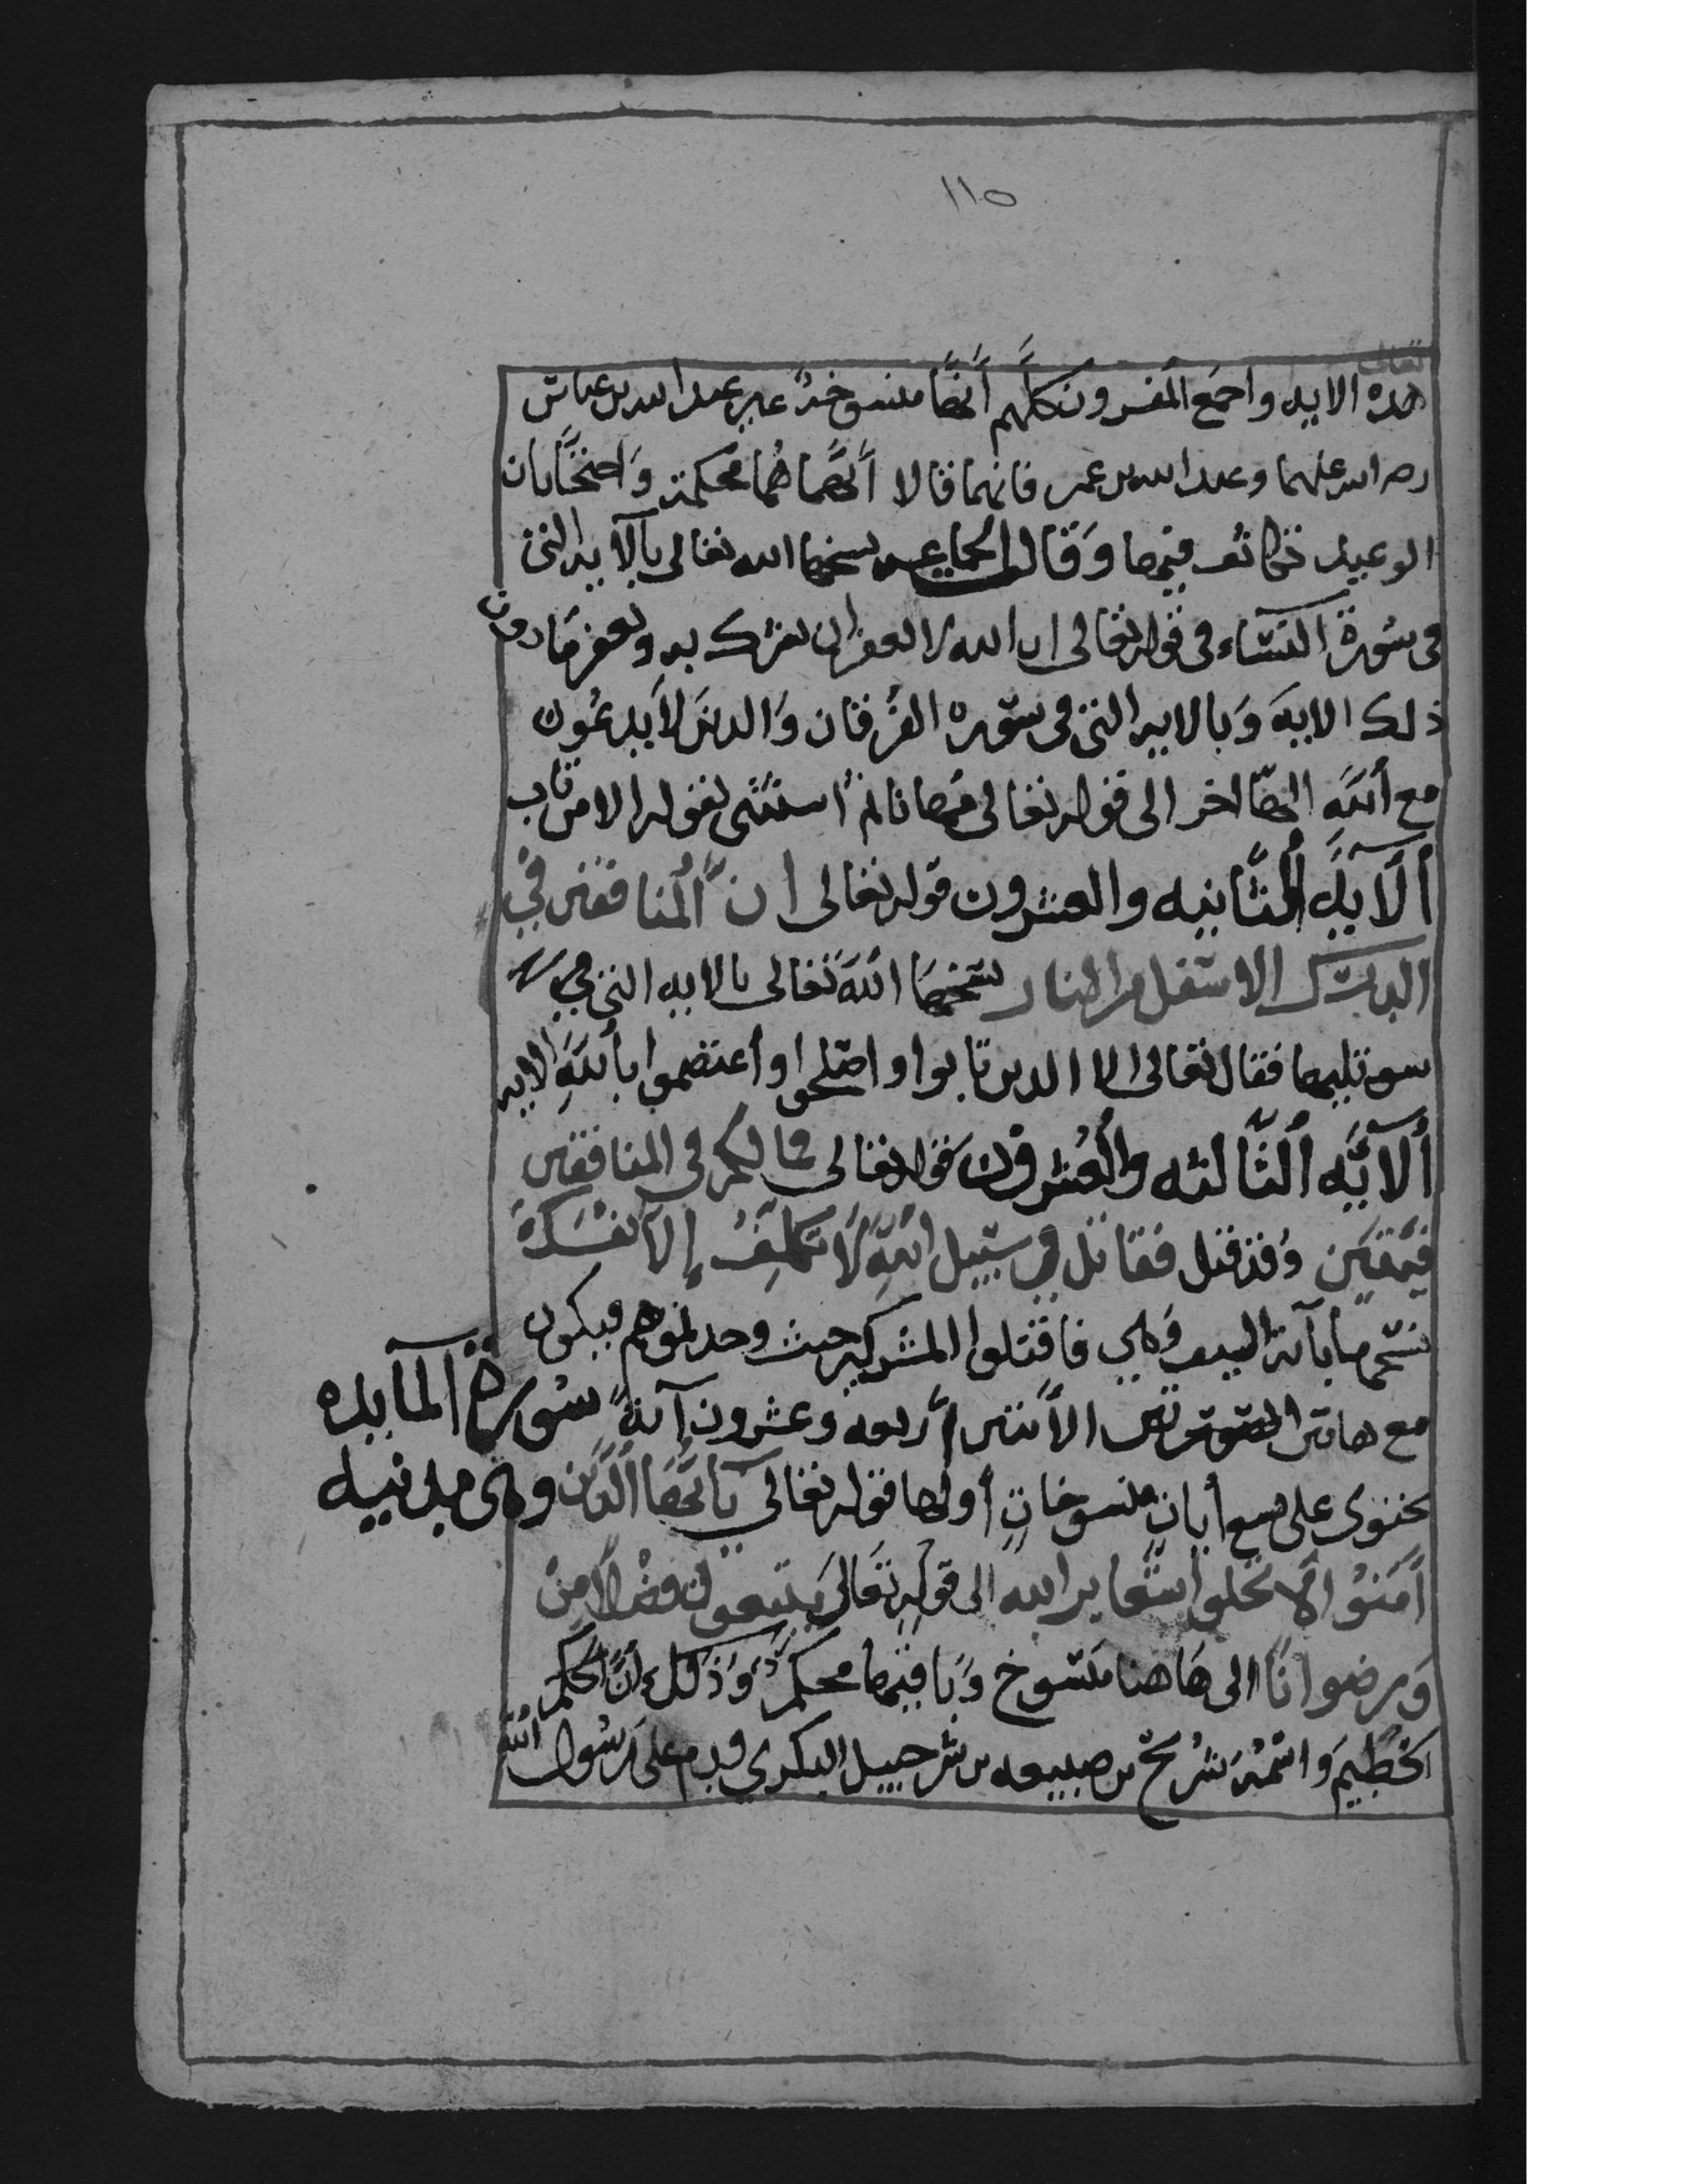 ١١٥
تعالى
هده الايه واجمع المفسرون كلهم أنها منسوخة غير عبد الله بن عباس
رضي الله عنهما وعبد الله بن عمر فانهما قالا أنهما محكمة واحتجا بان
الوعيد تكاثف فيها وقال الجماعه نسخها الله تعالى بالآيه التي
في سورة النساء في قوله تعالى ان الله لا يغفر ان يشرك به ويغفر ما دون
ذلك الايه وبالايه التي في سوره الفرقان والدين لا يدعون
مع الله الها اخر الى قوله تعالى مهانا ثم استثنى بقوله الا من تاب
ألآيه الثانيه والعشرون قوله تعالى ان المنافقين في
الدرك الاسفل من النار نسخها الله تعالى بالايه التي هي
تليها فقال تعالى الا الدين تابوا واصلحوا وأعتصموا بالله الايه
ألآيه الثالثه والعشرون قوله تعالى فما لكم في المنافقين
فئتين وقد قيل فقاتل في سبيل الله لا تكلف إلا نفسك
نسخها بآية السيف وهي فاقتلوا المشركين حيث وجدتموهم فيكون
مع هاتين الأيتين أربعه وعشرون آية سورة المآيده
تحتوي على تسع أيات منسوخات أولها قوله تعالى يآ أيها الدين وهي مدنيه
أمنوا لا تحلوا شعاير الله الى قوله تعالى يبتغون فضلا من
ورضوانا الى هاهنا منسوخ وباقيها محكم وذلك أن الحكم
الخطيم واسمه شريح بن ضبيعه بن شرحبيل البكري قدم على رسول الله